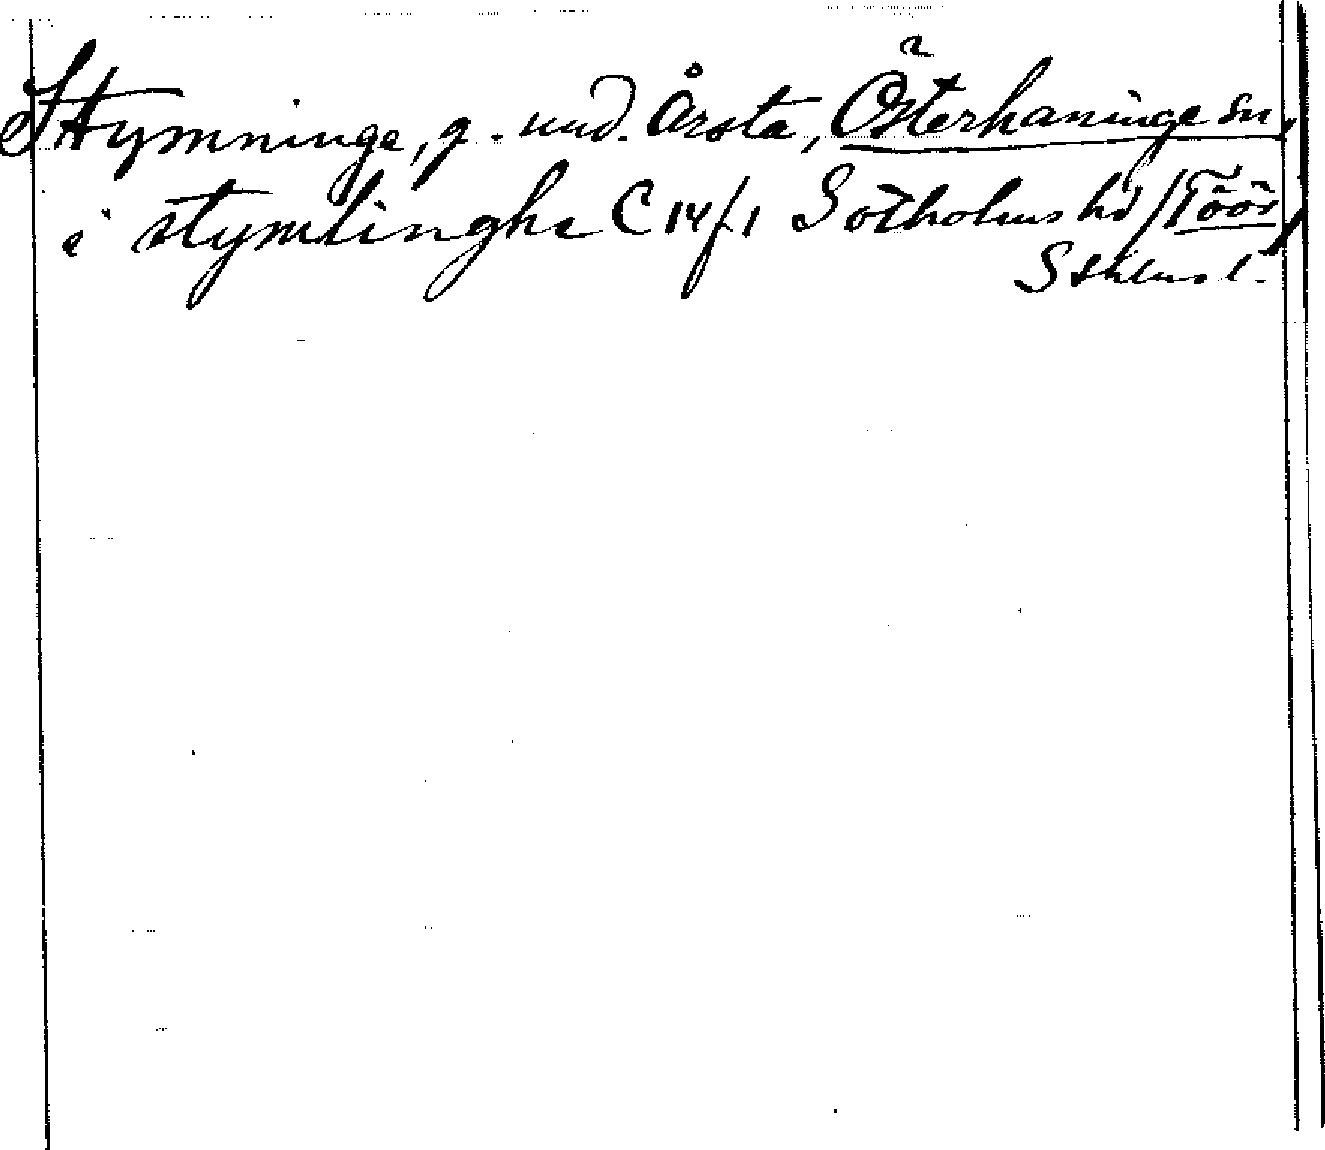 Stymninge, g. und. Årsta, Österhaninge sn,
i stymlinghe C 14/1 Sotholms hd /Töör/
Sthlms l.